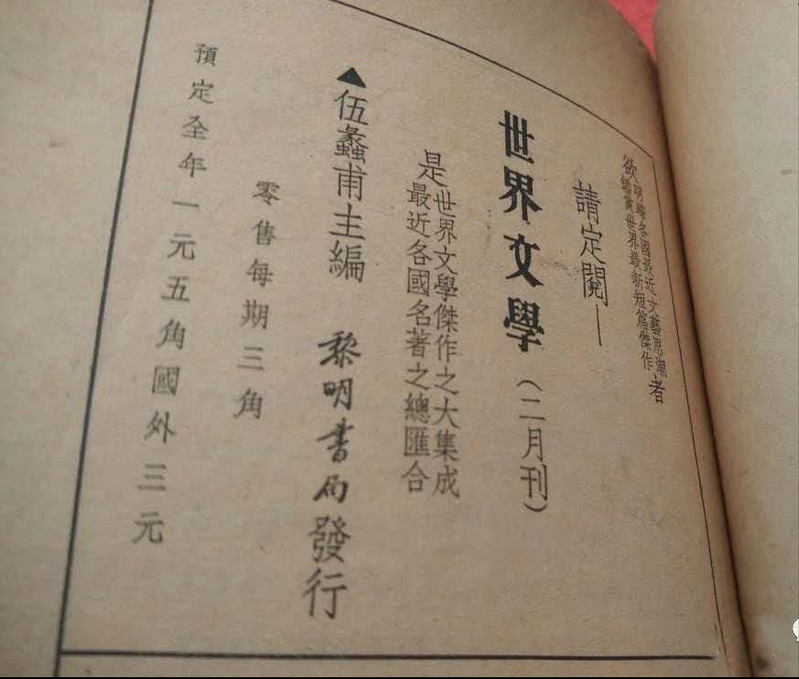 欲明瞭各國最近文藝思潮者
鑑賞世界最新短篇傑作
請定閱—
世界文學（二月刊）
是世界文學傑作之大集成
最近各國名著之總匯合
▲伍蠡甫主編 黎明書局發行
零售每期三角
預定全年一元五角國外三元